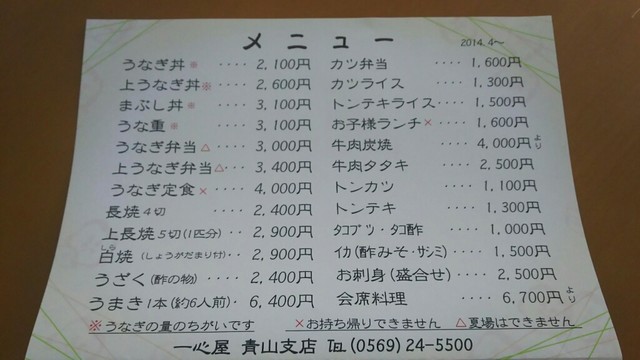 メニュー
2014.4〜
うなぎ丼※ ‥‥ 2,100円
上うなぎ丼※ ‥‥ 2,600円
まぶし丼※ ‥‥ 3,100円
うな重※ ‥‥ 3,100円
うなぎ弁当△ ‥‥ 3,000円
上うなぎ弁当△‥‥ 3,400円
うなぎ定食× ‥‥ 4,000円
長焼 4切 ‥‥ 2,400円
上長焼 5切(1匹分) ‥‥ 2,900円
白焼(しょうがだまり付)‥‥ 2,900円
しら
うざく(酢の物) ‥‥ 2,400円
うまき 1本(約6人前)‥ 6,400円
カツ弁当 ‥‥ 1,600円
カツライス ‥‥ 1,300円
トンテキライス‥‥ 1,500円
お子様ランチ× ‥‥ 1,600円
牛肉炭焼 ‥‥ 4,000円より
牛肉タタキ ‥‥ 2,500円
トンカツ ‥‥ 1,100円
トンテキ ‥‥ 1,300円
タコブツ・タコ酢 ‥‥ 1,000円
イカ(酢みそ・サシミ) ‥‥ 1,500円
お刺身(盛合せ) ‥‥ 2,500円
会席料理 ‥‥ 6,700円より
※うなぎの量のちがいです ×お持ち帰りできません △夏場はできません
一心屋 青山支店 TEL(0569)24-5500